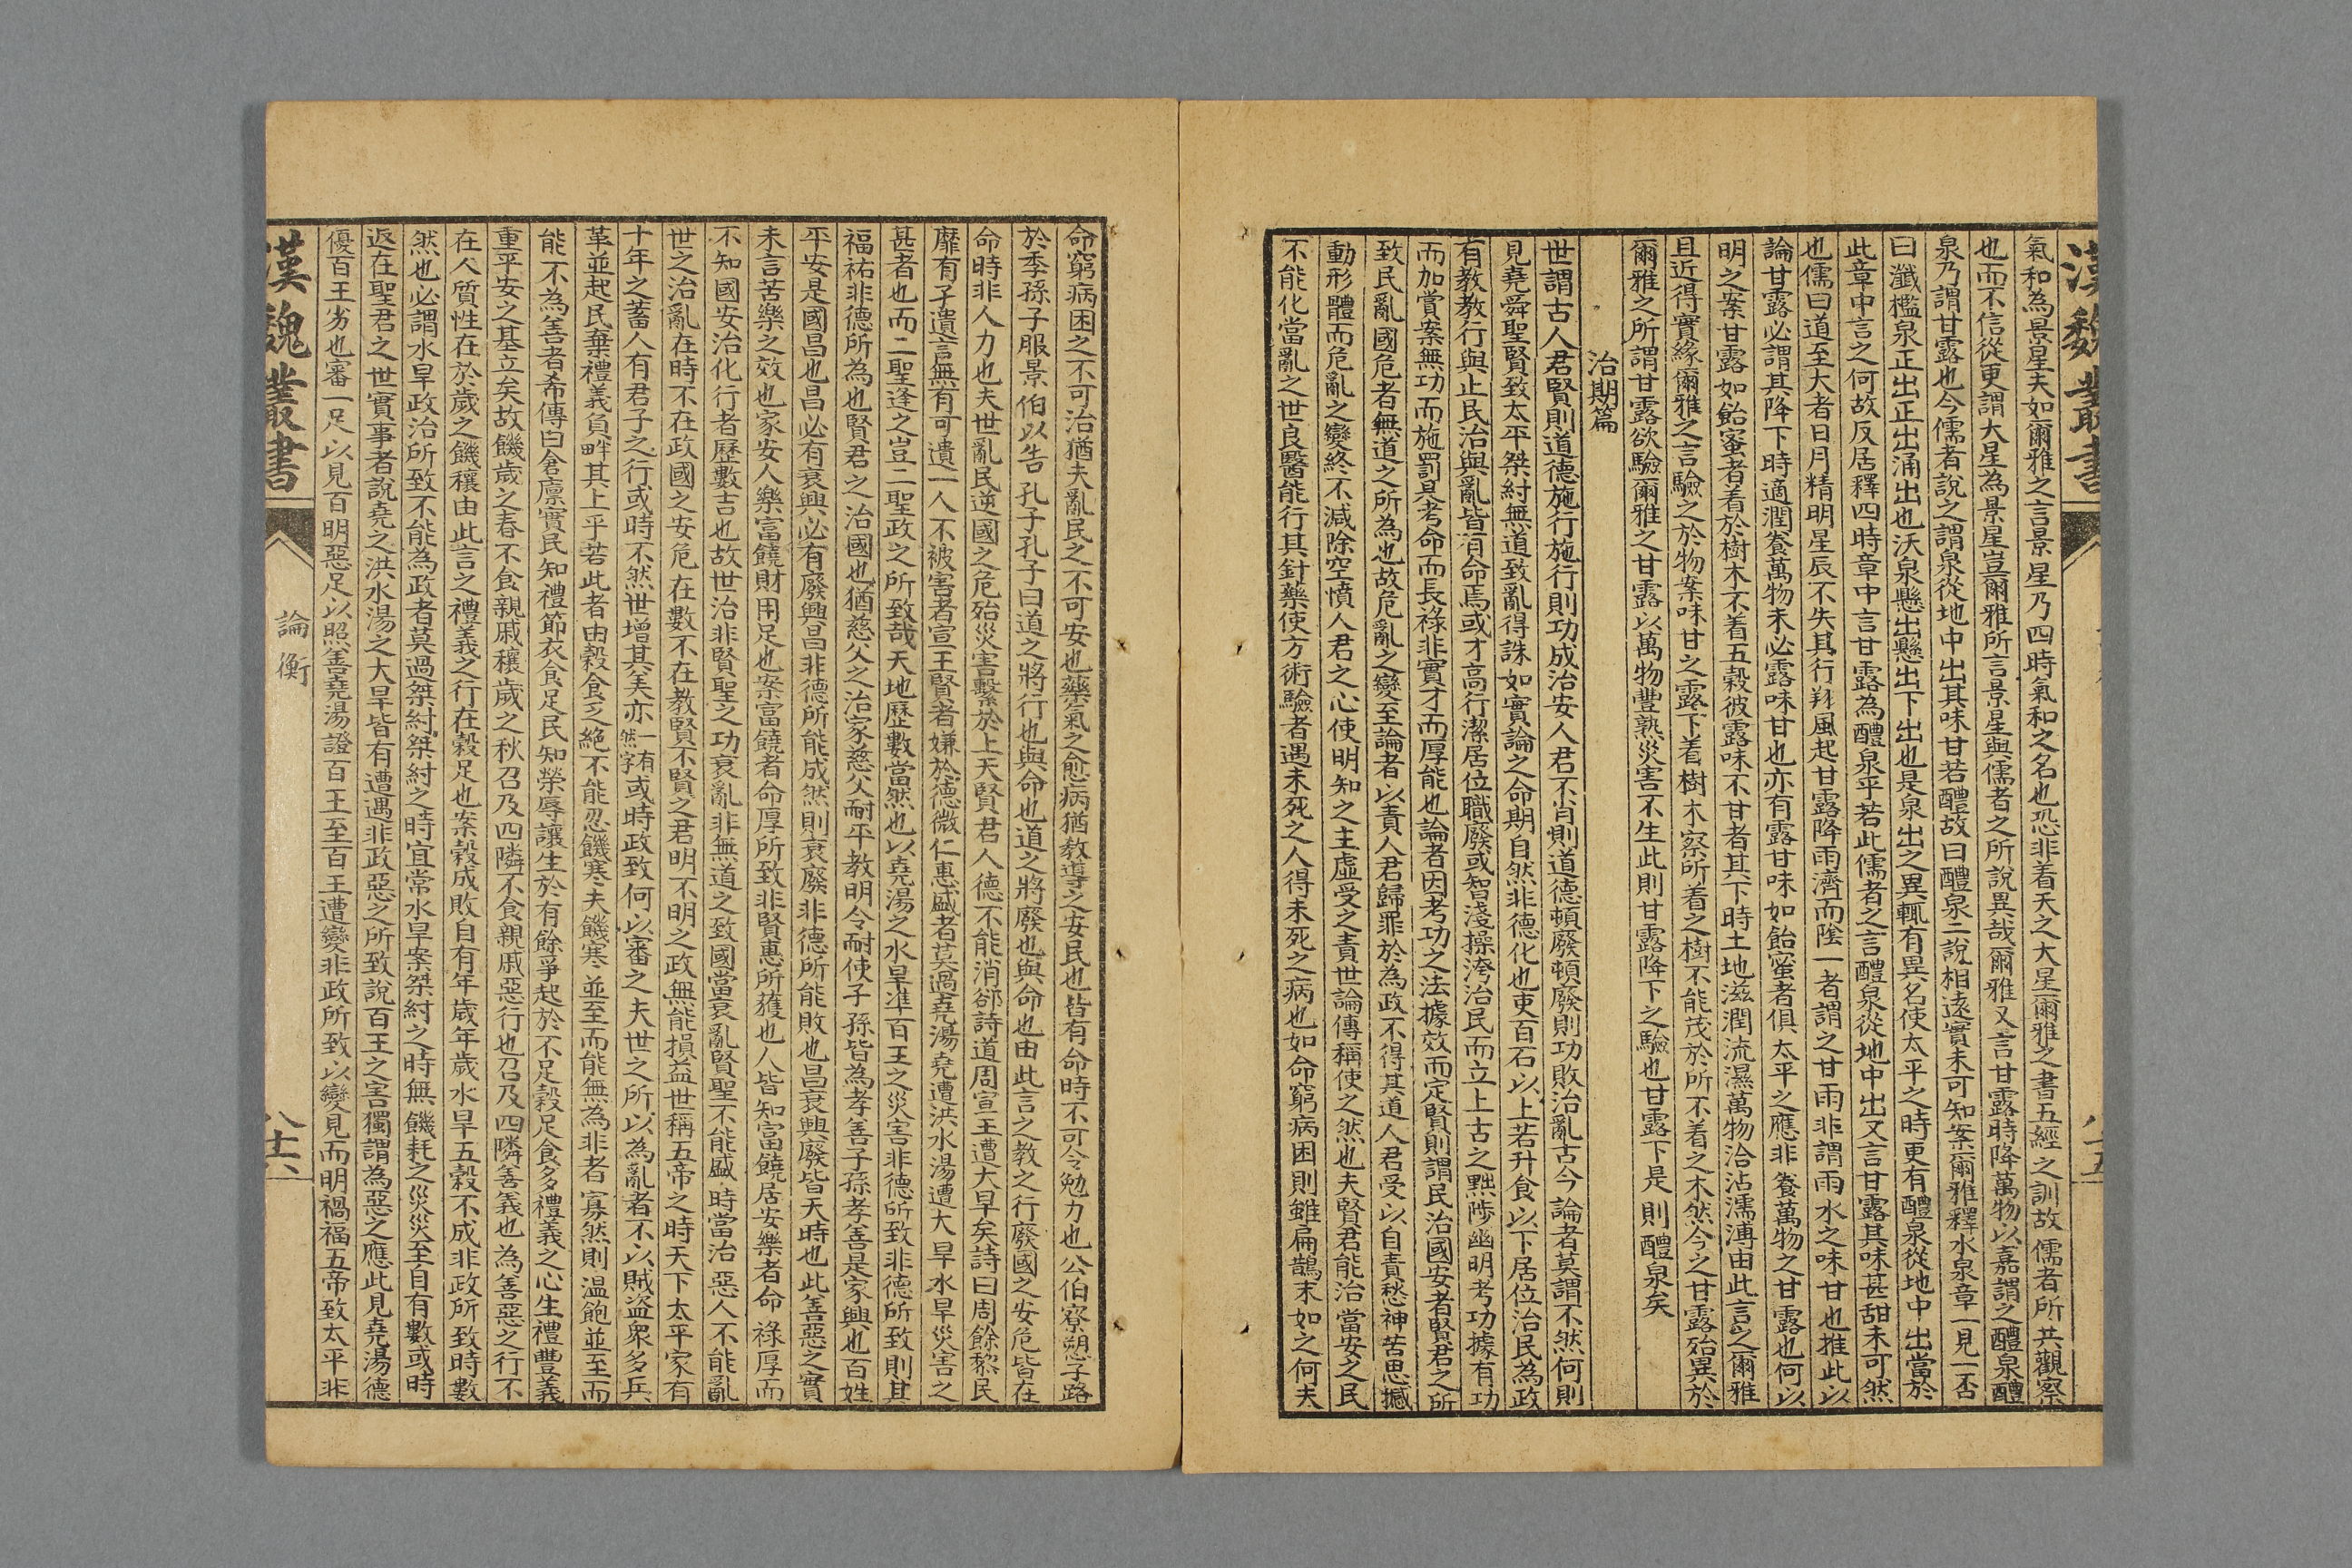 漢魏叢書
氣和為景星夫如爾雅之言景星乃四時氣和之名也恐非着天之大星爾雅之書五經之訓故儒者所共觀察
也而不信從更謂大星為景星豈爾雅所言景星與儒者之所說異哉爾雅又言甘露時降萬物以嘉謂之醴泉醴
泉乃謂甘露也今儒者說之謂泉從地中出其味甘若醴故曰醴泉二說相遠實未可知案爾雅釋水泉章一見一否
曰瀸檻泉正出正出涌出也沃泉懸出懸出下出也是泉出之異輒有異名使太平之時更有醴泉從地中出當於
此章中言之何故反居釋四時章中言甘露為醴泉乎若此儒者之言醴泉從地中出又言甘露其味甚甜未可然
也儒曰道至大者日月精明星辰不失其行翔風起甘露降雨濟而陰一者謂之甘雨非謂雨水之味甘也推此以
論甘露必謂其降下時適潤養萬物未必露味甘也亦有露甘味如飴蜜者俱太平之應非養萬物之甘露也何以
明之案甘露如飴蜜者着於樹木不着五穀彼露味不甘者其下時土地滋潤流濕萬物洽沾濡溥由此言之爾雅
且近得實緣爾雅之言驗之於物案味甘之露下着樹木察所着之樹不能茂於所不着之木然今之甘露殆異於
爾雅之所謂甘露欲驗爾雅之甘露以萬物豐熟災害不生此則甘露降下之驗也甘露下是則醴泉矣
治期篇
世謂古人君賢則道德施行施行則功成治安人君不肖則道德頓廢頓廢則功敗治亂古今論者莫謂不然何則
見堯舜聖賢致太平桀紂無道致亂得誅如實論之命期自然非德化也吏百石以上若升食以下居位治民為政
有教教行與止民治與亂皆有命焉或才高行潔居位職廢或智淺操洿治民而立上古之黜陟幽明考功據有功
而加賞案無功而施罰是考命而長祿非實才而厚能也論者因考功之法據效而定賢則謂民治國安者賢君之所
致民亂國危者無道之所為也故危亂之變至論者以責人君歸罪於為政不得其道人君受以自責愁神苦思撼
動形體而危亂之變終不減除空憤人君之心使明知之主虛受之責世論傳稱使之然也夫賢君能治當安之民
不能化當亂之世良醫能行其針藥使方術驗者遇未死之人得未死之病也如命窮病困則雖扁鵲末如之何夫
命窮病困之不可治猶夫亂民之不可安也藥氣之愈病猶教導之安民也皆有命時不可令勉力也公伯寮愬子路
於季孫子服景伯以告孔子孔子曰道之將行也與命也道之將廢也與命也由此言之教之行廢國之安危皆在
命時非人力也夫世亂民逆國之危殆災害繫於上天賢君人德不能消郤詩道周宣王遭大旱矣詩曰周餘黎民
靡有孑遺言無有可遺一人不被害者宣王賢者嫌於德微仁惠盛者莫過堯湯堯遭洪水湯遭大旱水旱災害之
甚者也而二聖逢之豈二聖政之所致哉天地歷數當然也以堯湯之水旱準百王之災害非德所致非德所致則其
福祐非德所為也賢君之治國也猶慈父之治家慈父耐平教明令耐使子孫皆為孝善子孫孝善是家興也百姓
平安是國昌也昌必有衰興必有廢興昌非德所能成然則衰廢非德所能敗也昌衰興廢皆天時也此善惡之實
未言苦樂之效也家安人樂富饒財用足也案富饒者命厚所致非賢惠所獲也人皆知富饒居安樂者命祿厚而
不知國安治化行者歷數吉也故世治非賢聖之功衰亂非無道之致國當衰亂賢聖不能盛時當治惡人不能亂
世之治亂在時不在政國之安危在數不在教賢不賢之君明不明之政無能損益世稱五帝之時天下太平家有
十年之蓄人有君子之行或時不然世增其美亦一有然字或時政致何以審之夫世之所以為亂者不以賊盜衆多兵
革並起民棄禮義負畔其上乎若此者由穀食乏絕不能忍饑寒夫饑寒並至而能無為非者寡然則温飽並至而
能不為善者希傳曰倉廩實民知禮節衣食足民知榮辱讓生於有餘爭起於不足穀足食多禮義之心生禮豐義
重平安之基立矣故饑歲之春不食親戚穰歲之秋召及四隣不食親戚惡行也召及四隣善義也為善惡之行不
在人質性在於歲之饑穰由此言之禮義之行在穀足也案穀成敗自有年歲年歲水旱五穀不成非政所致時數
然也必謂水旱政治所致不能為政者莫過桀紂桀紂之時宜常水旱案桀紂之時無饑耗之災災至自有數或時
返在聖君之世實事者說堯之洪水湯之大旱皆有遭遇非政惡之所致說百王之害獨謂為惡之應此見堯湯德
優百王劣也審一足以見百明惡足以照善堯湯證百王至百王遭變非政所致以變見而明禍福五帝致太平非
漢魏叢書
論衡